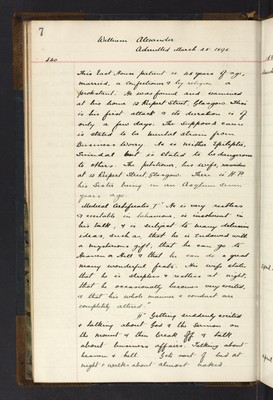 7
William Alexander
Admitted March 28. 189
This East House patient is 48 years of age,
married, a Confectioner & by religion a
protestant. He was found and examined
at his home 12 Rupert Street, Glasgow. This
is his first attack & its duration is of
only a few days. The supposed cause
is stated to be mental strain from
Business Worry. He is neither Epileptic,
Suicidal but is stated to be dangerous
to others. The petitioner, his wife, resides
at 12 Rupert Street, Glasgow. There is H.P.
his Sister being in an Asylum seven
years ago.
Medical Certificates I "He is very restless
& excitable in behaviour, is incoherent in
his talk, & is subject to many delusive
ideas, such as that he is endowed with
a mysterious gift, that he can go to
Heaven or Hell & that he can do a great
many wonderful feats. His wife states
that he is sleepless & restless at night,
that he occasionally becomes very excited,
& that his whole manner & conduct are
completely altered"
II "Getting suddenly excited
& talking about God & the Sermon on
the mount & then break off & talk
about business affairs. Talking about
heaven & hell. Gets out of bed at
night & walks about almost naked